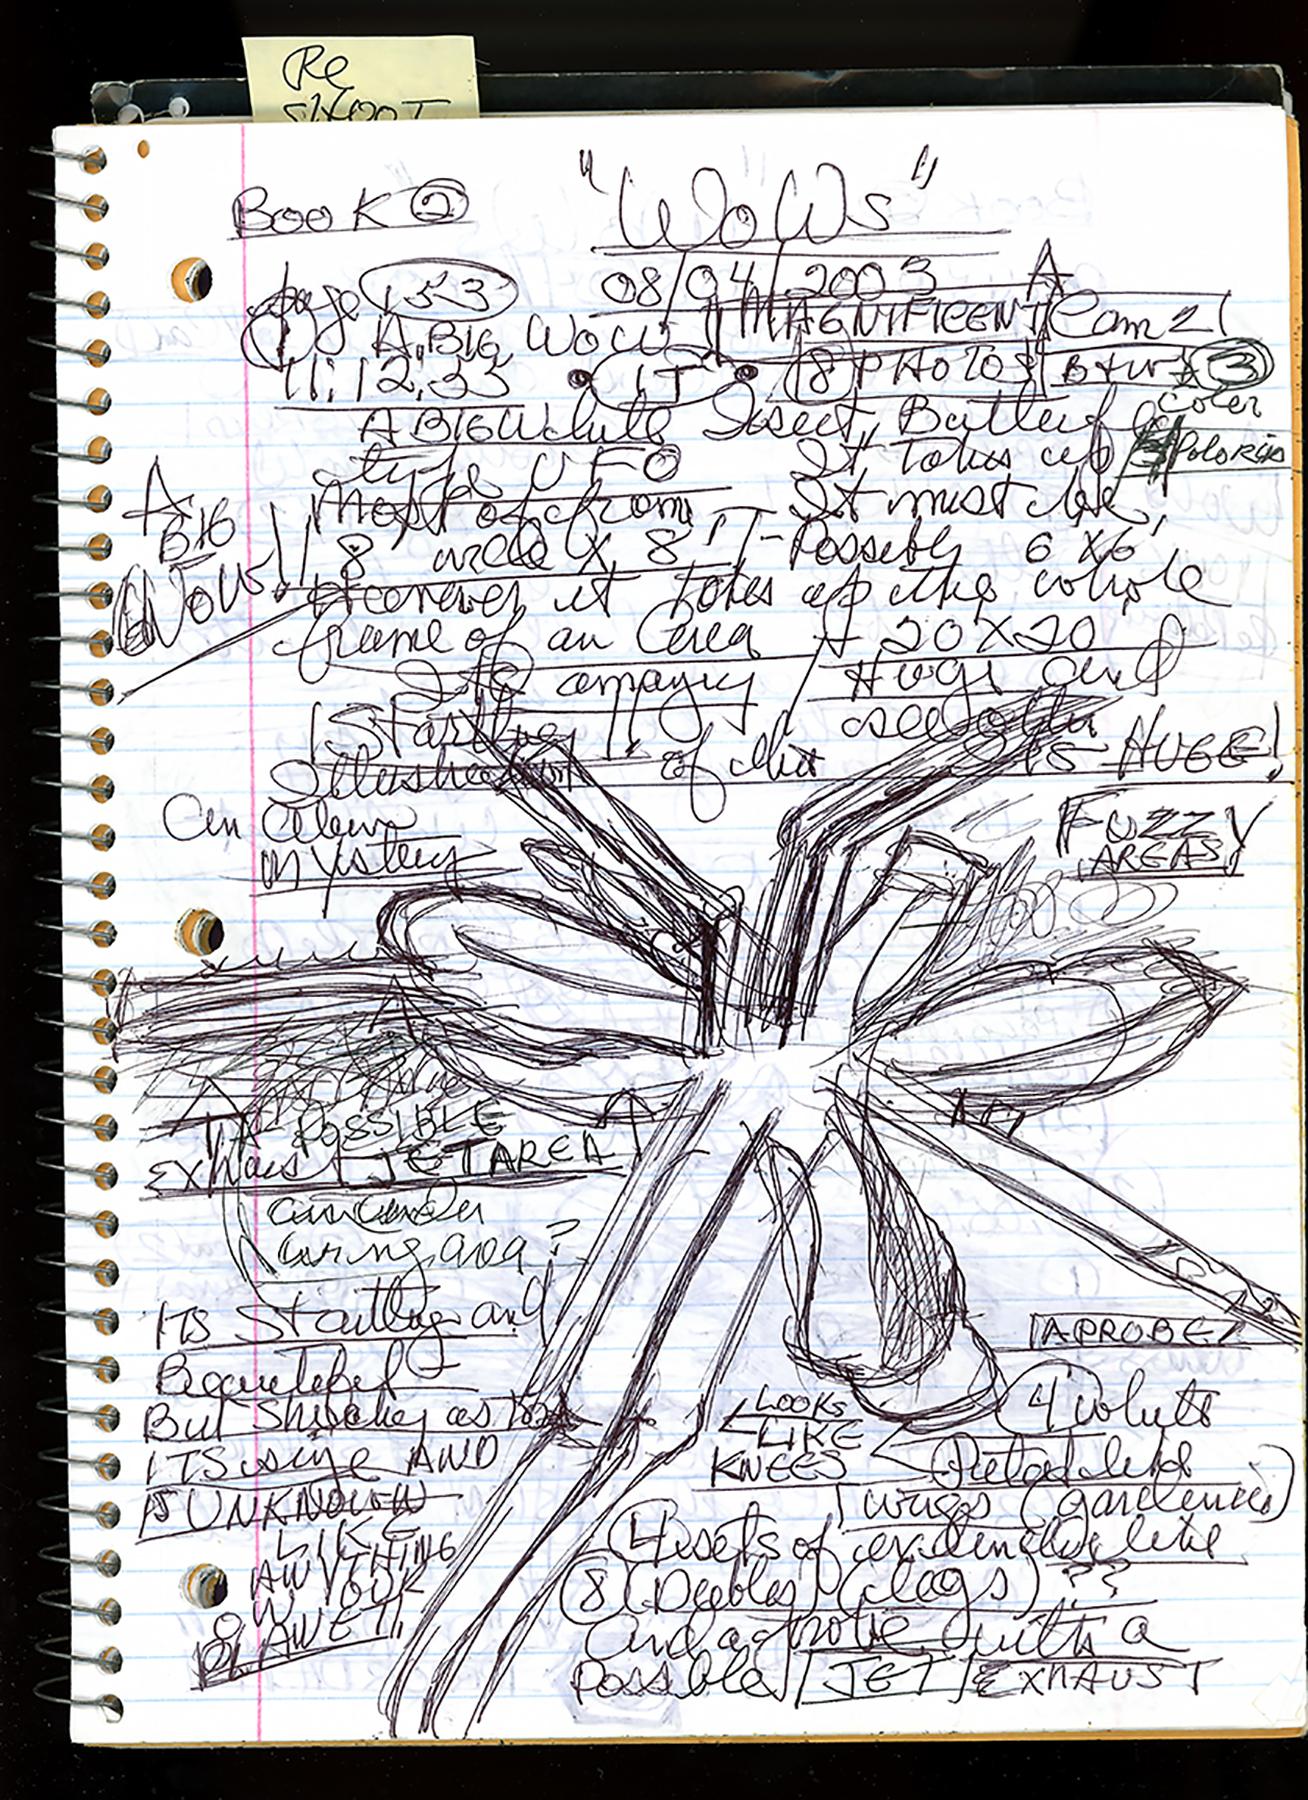 Re
SHOOT
BOOK 2 "WOWS"
page 153 08/04/2003 A
1) A BIG WOW!! MAGNIFICENT Cam 21
11:12:33 • IT • 8 PHOTOS B+W 3
color
A BIG White Insect, Butterfly
type UFO It takes up Poloroids
Most of from It must be
8' wide X 8' - Possibly 6 X 6'
However it takes up the whole
frame of an area 20 X 20
A
BIG
WOW!!
Its amazing Huge and
IS Startling
Illustration of this IS HUGE!
an alien
mystery
FUZZY
AREAS
A POSSIBLE
EXHAUST JET AREA
an under
wing area?
Its Startling and
Beautiful
But Shocking as to
ITS size AND
IS UNKNOWN
LIKE
ANYTHING
IN OUR
PLANET!!
A PROBE
LOOKS
LIKE
KNEES
4 white
Petal like
wings (gardenias)
4 sets of like
8 (Doubles) (legs) ??
and a probe with a
Possible JET EXHAUST